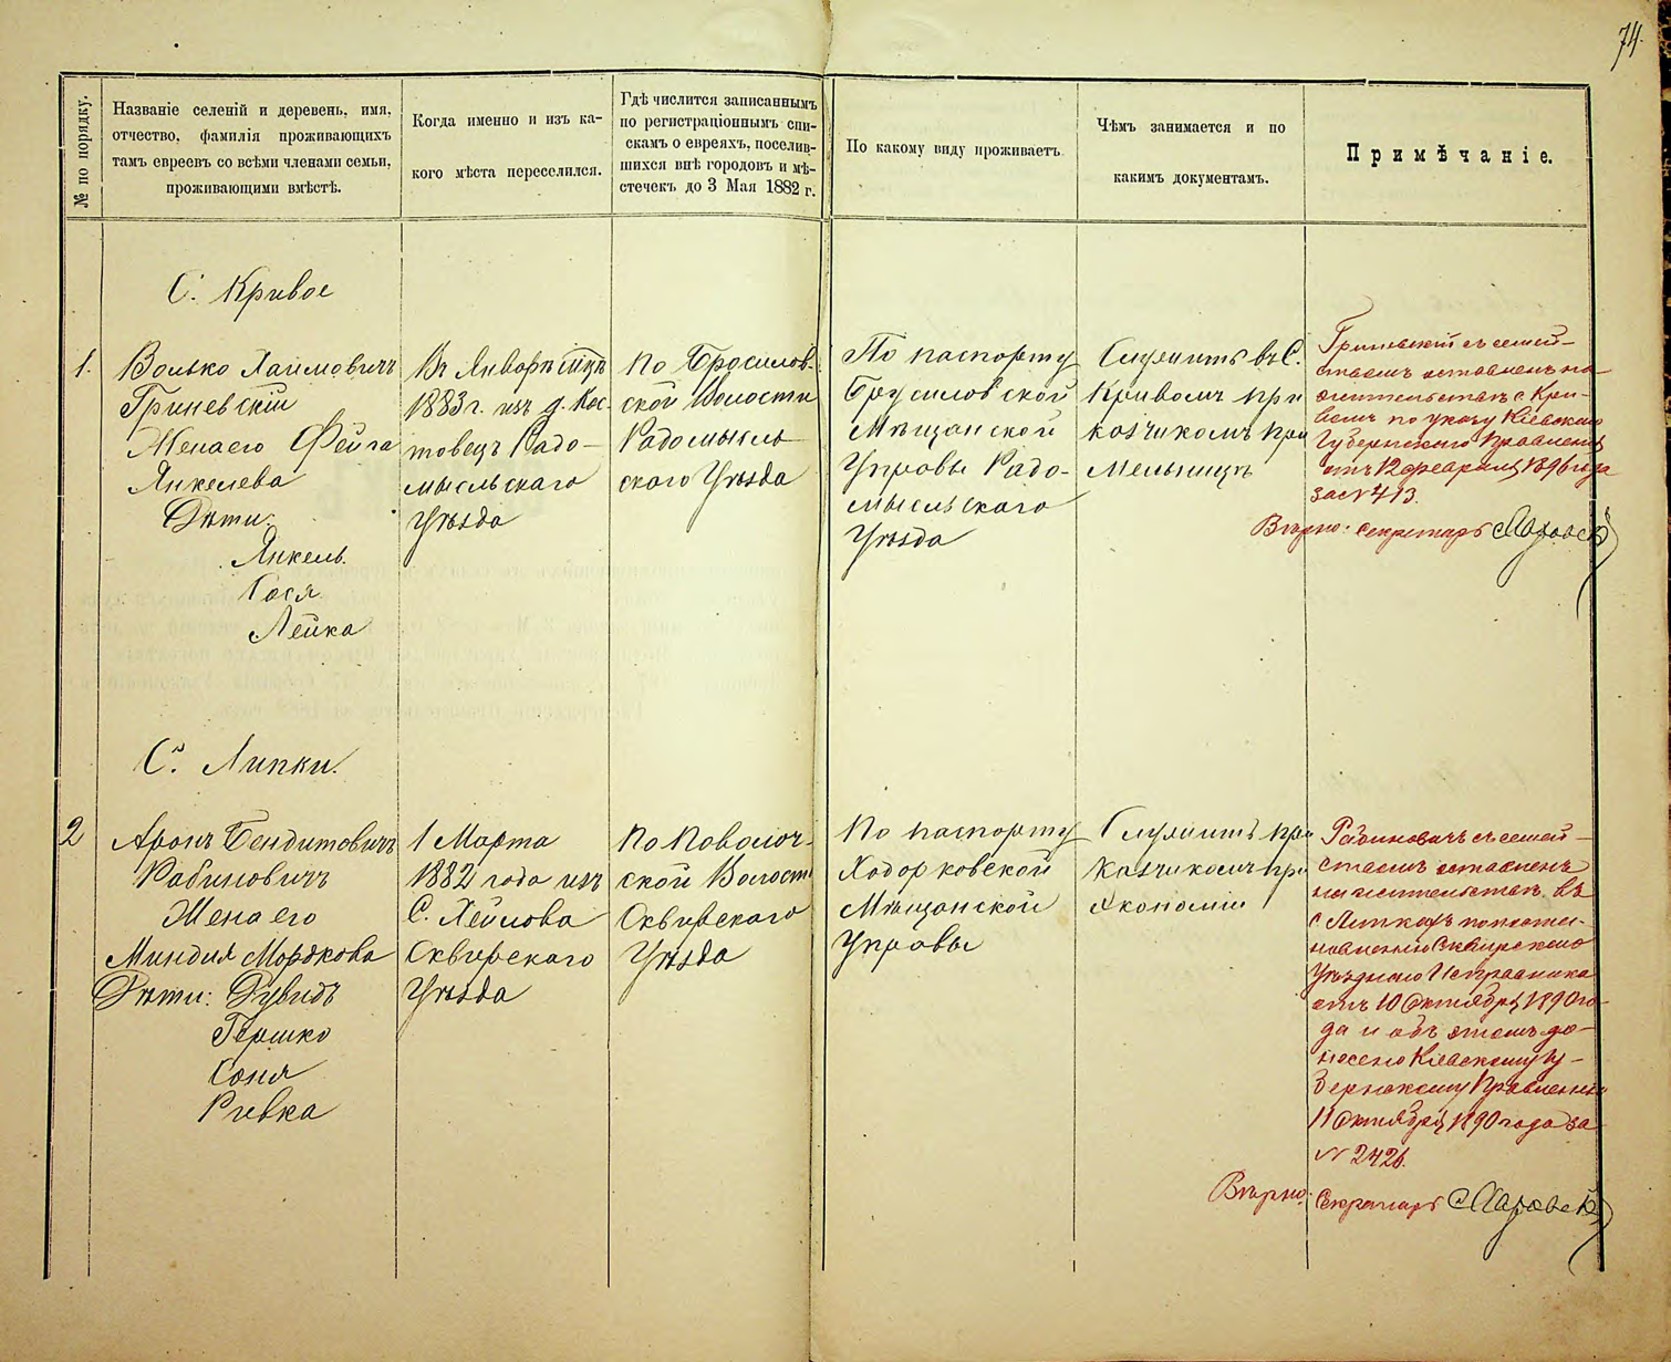 74.
№ по порядку.
Названіе селеній и деревень, имя,
отчество, фамилія проживающихъ
тамъ евреевъ со всѣми членами семьи,
проживающими вмѣстѣ.
Когда именно и изъ ка-
кого мѣста переселился.
Гдѣ числится записаннымъ
по регистраціоннымъ спи-
скамъ о евреяхъ, поселив-
шихся внѣ городовъ и мѣ-
стечекъ до 3 Мая 1882 г.
По какому виду проживаетъ
Чѣмъ занимается и по
какимъ документамъ.
Примѣчаніе.
С. Кривое
1.
Волько Хаимовичъ
Гриневскій
Жена его Фейга
Янкелева
Дѣти:
Янкель
Гося
Лейка
Въ Январѣ мцѣ
1883 г. изъ д. Кос-
товецъ Радо-
мысльскаго
Уѣзда
По Бросилов-
ской Волости
Радомысль-
скаго Уѣзда
По паспорту
Брусиловской
Мѣщанской
Управы Радо-
мысльскаго
Уѣзда
Служитъ въ С.
Кривомъ при
кащикомъ при
Мельницѣ
Гриневскій съ семей-
ствомъ оставленъ на
жительствѣ въ с. Кри-
вомъ по указу Кіевскаго
Губернскаго Правленія
отъ 12 февраля 1896 года
за № 413.
Вѣрно: Секретарь
С. Липки.
2
Аронъ Бендитовичъ
Рабиновичъ
Жена его
Миндля Мордкова
Дѣти: Дувидъ
Гершко
Соня
Ривка
1 Марта
1882 года изъ
С. Хейлова
Сквирскаго
Уѣзда
По Поволоч-
ской Волости
Сквирскаго
Уѣзда
По паспорту
Ходорковской
Мѣщанской
Управы
Служитъ при
кащикомъ при
Экономіи
Рабиновичъ съ семей-
ствомъ оставленъ
на жительствѣ въ
с. Липкахъ по поста-
новленію Сквирскаго
Уѣзднаго Исправника
отъ 10 Октября 1890 го-
да и объ этомъ до-
несено Кіевскому Гу-
бернскому Правленію
11 Октября 1890 года за
№ 2426.
Вѣрно: Секретарь